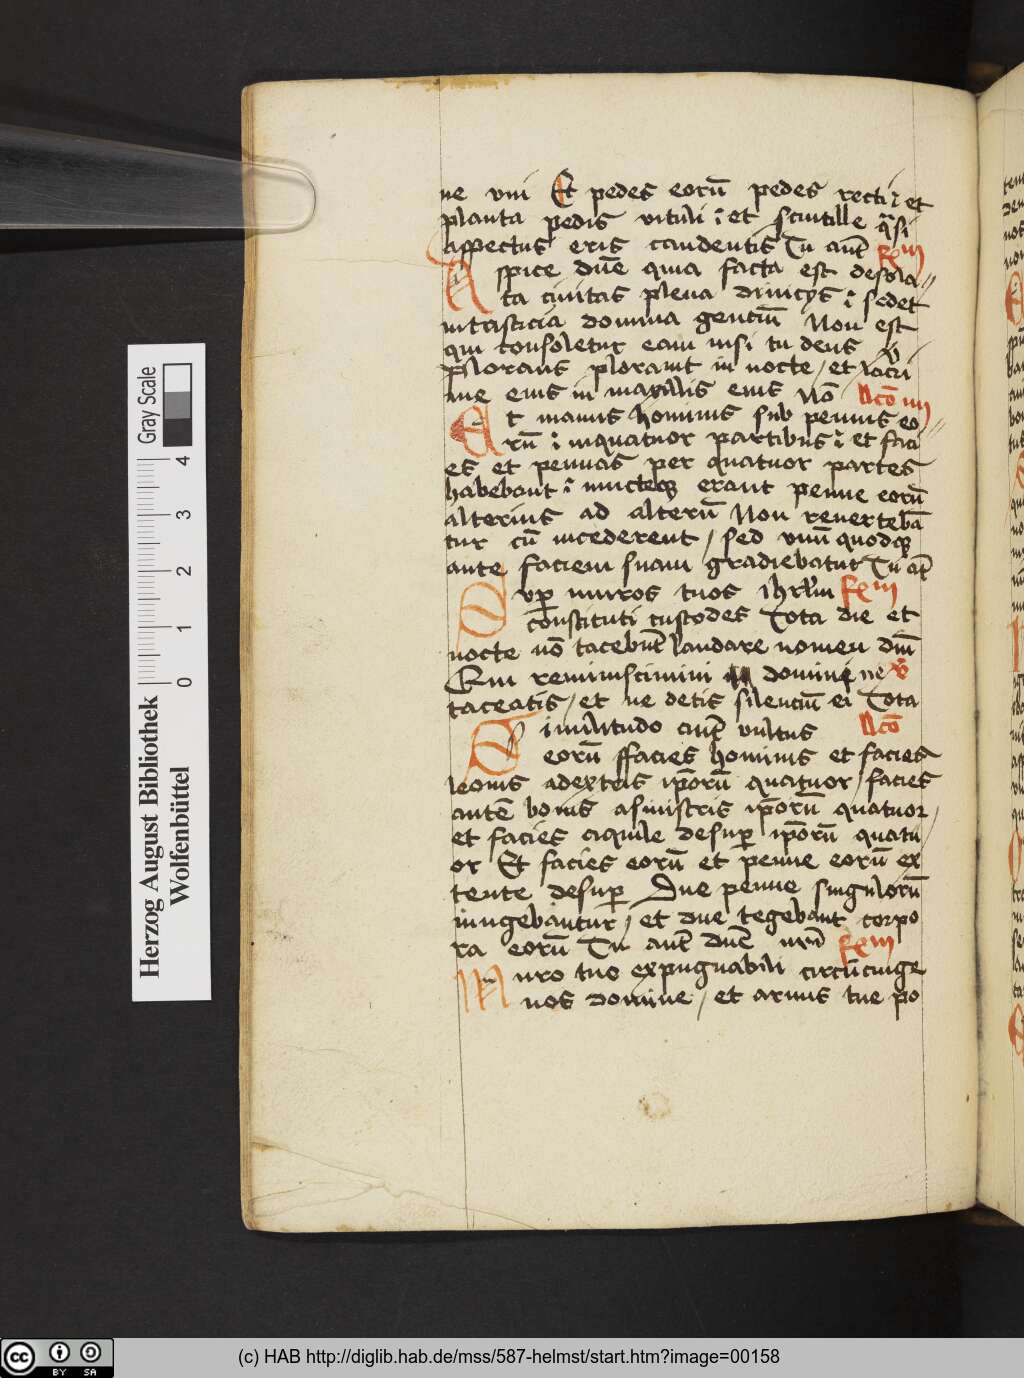 ne vni Et pedes eorū pedes recti ⁊ et
planta pedis vituli ⁊ et scintille q̄si
aspectus eris candentis Tu aūt
Aspice dn̄e quia facta est desola
ta ciuitas plena diuicijs ⁊ sedet
in tristicia domina genciū Non est
qui consoletur eam nisi tu deus
Plorans plorauit in nocte / et lacri
me eius in maxillis eius Nō lcō
Et manus hominis sub pennis eo
rū ⁊ in quatuor partibus ⁊ et faci
es et pennas per quatuor partes
habebant ⁊ iuncteq erant penne eorū
alterius ad alterū Non reuertebā
tur cū incederent / sed vnū quodq
ante faciem suam gradiebatur Tu aūt
Sup muros tuos ihrlm
constituti custodes Tota die et
nocte nō tacebūt laudare nomen dn̄i
Qui reminiscimini domini ne
taceatis / et ne detis silenciū ei Tota
Similitudo aūt vultus lcō
eorū ffacies hominis et facies
leonis adextris ip̄orū quatuor / facies
autē bouis asinistris ip̄orū quatuor
et facies aquile desup ip̄orū quatu
or Et facies eorū et penne eorū ex
tente desup Due penne singulorū
iungebantur / et due tegebant corpo
ra eorū Tu aūt dn̄e
Muro tuo expugnabili circūcinge
nos domine / et armis tue po
Herzog August Bibliothek
Wolfenbüttel
Gray Scale
0 1 2 3 4
cc BY SA
(c) HAB http://diglib.hab.de/mss/587-helmst/start.htm?image=00158